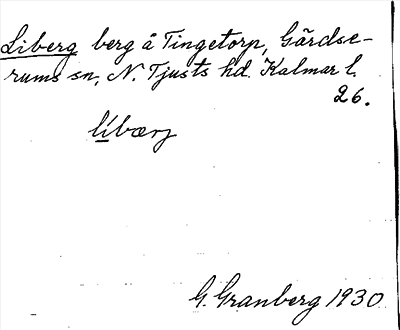 Liberg berg å Tingetorp, Gärdse-
rums sn, N. Tjusts hd. Kalmar l.
26.
líbærj
G. Granberg 1930